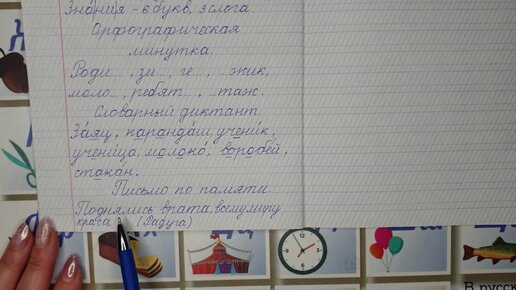 Знания - 6 букв, 3 слога.
Орфографическая
минутка.
Роди..., зи..., ге..., ...жик,
моло..., ребят..., ...таж.
Словарный диктант.
Заяц, карандаш, ученик,
ученица, молоко, воробей,
стакан.
Письмо по памяти.
Поднялись врата, всему миру
краса (Радуга)
В русск